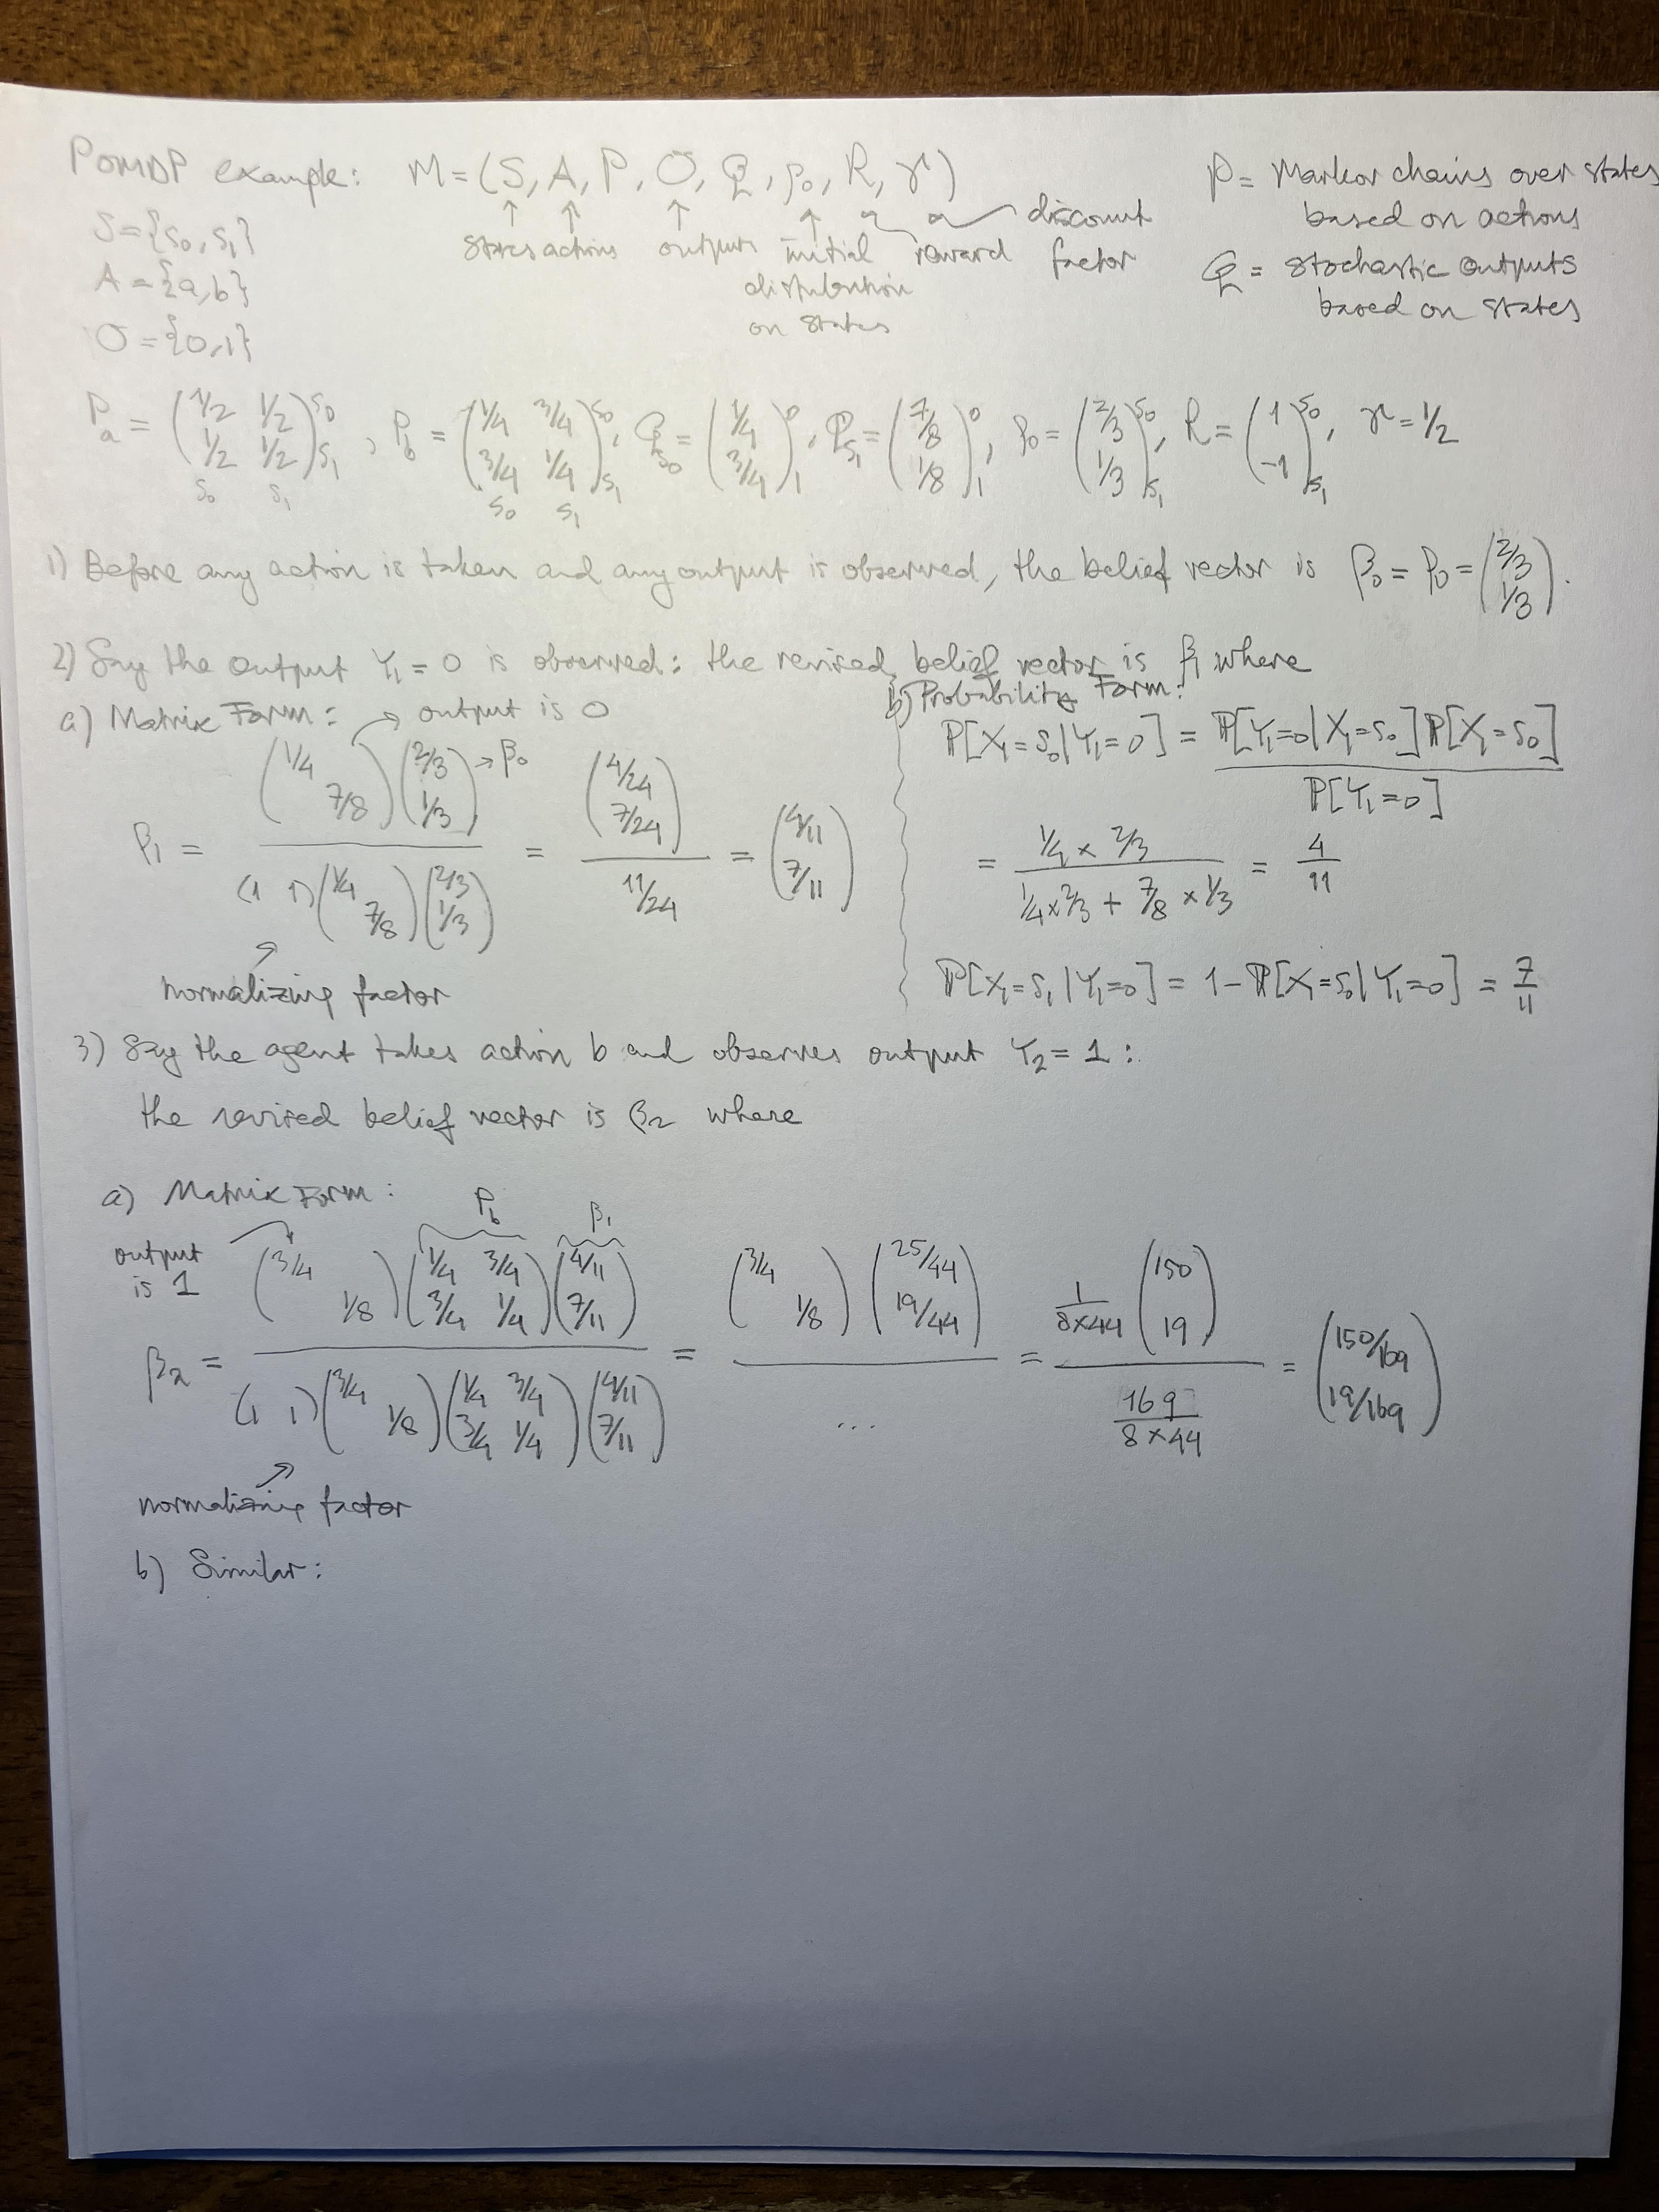 POMDP example: M = (S, A, P, O, Q, ρ₀, R, γ)
states actions outputs initial distribution on states reward discount factor
P = Markov chains over states based on actions
Q = stochastic outputs based on states
S = {s₀, s₁}
A = {a, b}
O = {0, 1}
P_a = (1/2 1/2; 1/2 1/2) s₀ s₁ s₀ s₁, P_b = (1/4 3/4; 3/4 1/4) s₀ s₁ s₀ s₁, Q_s₀ = (1/4; 3/4) 0 1, Q_s₁ = (7/8; 1/8) 0 1, ρ₀ = (2/3; 1/3) s₀ s₁, R = (1; -1) s₀ s₁, γ = 1/2
1) Before any action is taken and any output is observed, the belief vector is β₀ = ρ₀ = (2/3; 1/3).
2) Say the output Y₁ = 0 is observed: the revised belief vector is β₁ where
a) Matrix Form: → output is 0
β₁ = (1/4 7/8)(2/3; 1/3) → β₀ / (1 1)(1/4 7/8)(2/3; 1/3) = (4/24; 7/24) / 11/24 = (4/11; 7/11)
normalizing factor
b) Probability Form:
P[X₁ = s₀ | Y₁ = 0] = P[Y₁ = 0 | X₁ = s₀] P[X₁ = s₀] / P[Y₁ = 0]
= 1/4 × 2/3 / 1/4 × 2/3 + 7/8 × 1/3 = 4/11
P[X₁ = s₁ | Y₁ = 0] = 1 - P[X₁ = s₀ | Y₁ = 0] = 7/11
3) Say the agent takes action b and observes output Y₂ = 1 :
the revised belief vector is β₂ where
a) Matrix Form :
output is 1 P_b β₁
β₂ = (3/4 1/8)(1/4 3/4; 3/4 1/4)(4/11; 7/11) / (1 1)(3/4 1/8)(1/4 3/4; 3/4 1/4)(4/11; 7/11) = (3/4 1/8)(25/44; 19/44) / ... = 1/8×44 (150; 19) / 169/8×44 = (150/169; 19/169)
normalizing factor
b) Similar :